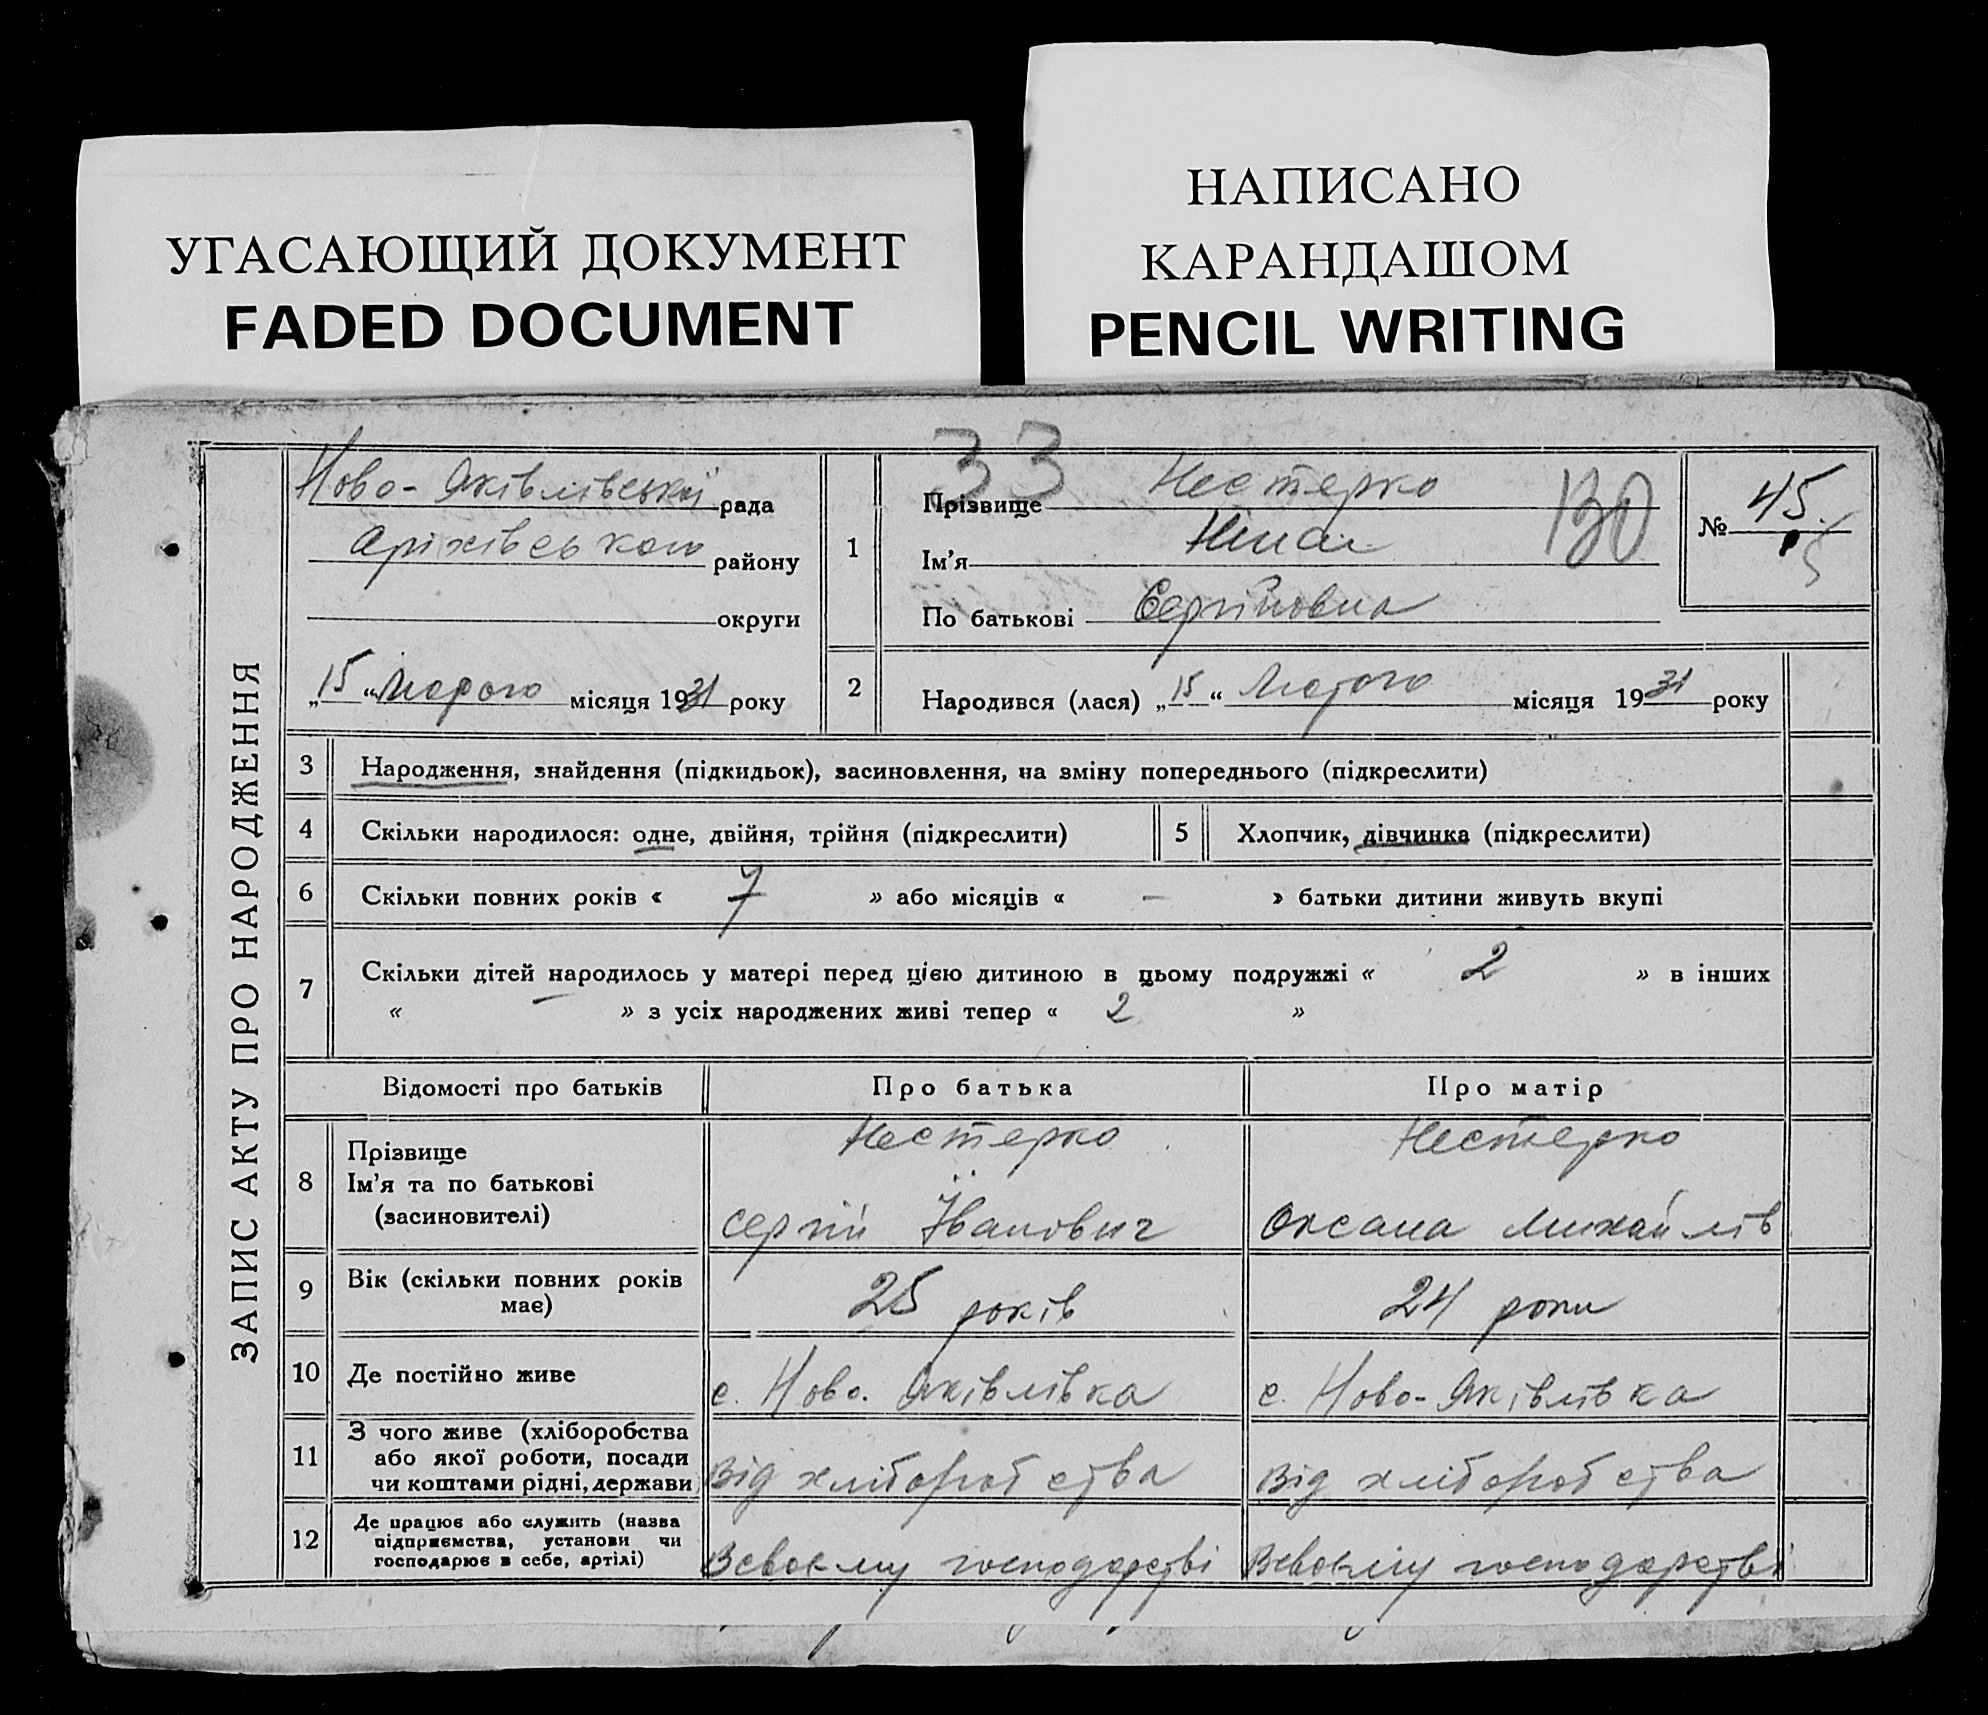 УГАСАЮЩИЙ ДОКУМЕНТ
FADED DOCUMENT
НАПИСАНО
КАРАНДАШОМ
PENCIL WRITING
ЗАПИС АКТУ ПРО НАРОДЖЕННЯ
33
130
Ново-Яківлівської рада
Оріхівського району
округи
„15“ Лютого місяця 1931 року
1
Прізвище Нестерко
Ім'я Ніна
По батькові Сергіївна
№ 45.
2
Народився (лася) „15“ Лютого місяця 1931 року
3 Народження, знайдення (підкидьок), засиновлення, на зміну попереднього (підкреслити)
4 Скільки народилося: одне, двійня, трійня (підкреслити)
5 Хлопчик, дівчинка (підкреслити)
6 Скільки повних років « 7 » або місяців « — » батьки дитини живуть вкупі
7 Скільки дітей народилось у матері перед цією дитиною в цьому подружжі « 2 » в інших
« — » з усіх народжених живі тепер « 2 »
Відомості про батьків Про батька Про матір
8 Прізвище Нестерко Нестерко
Ім'я та по батькові
(засиновителі) Сергій Їванович Оксана Михайлів
9 Вік (скільки повних років
має) 25 років 24 роки
10 Де постійно живе с. Ново. Яківлівка с. Ново-Яківлівка
11 З чого живе (хліборобства
або якої роботи, посади
чи коштами рідні, держави Від хліборобства Від хліборобства
12 Де працює або служить (назва
підприємства, установи чи
господарює в себе, артілі) Всвоєму господарстві Всвоєму господарстві